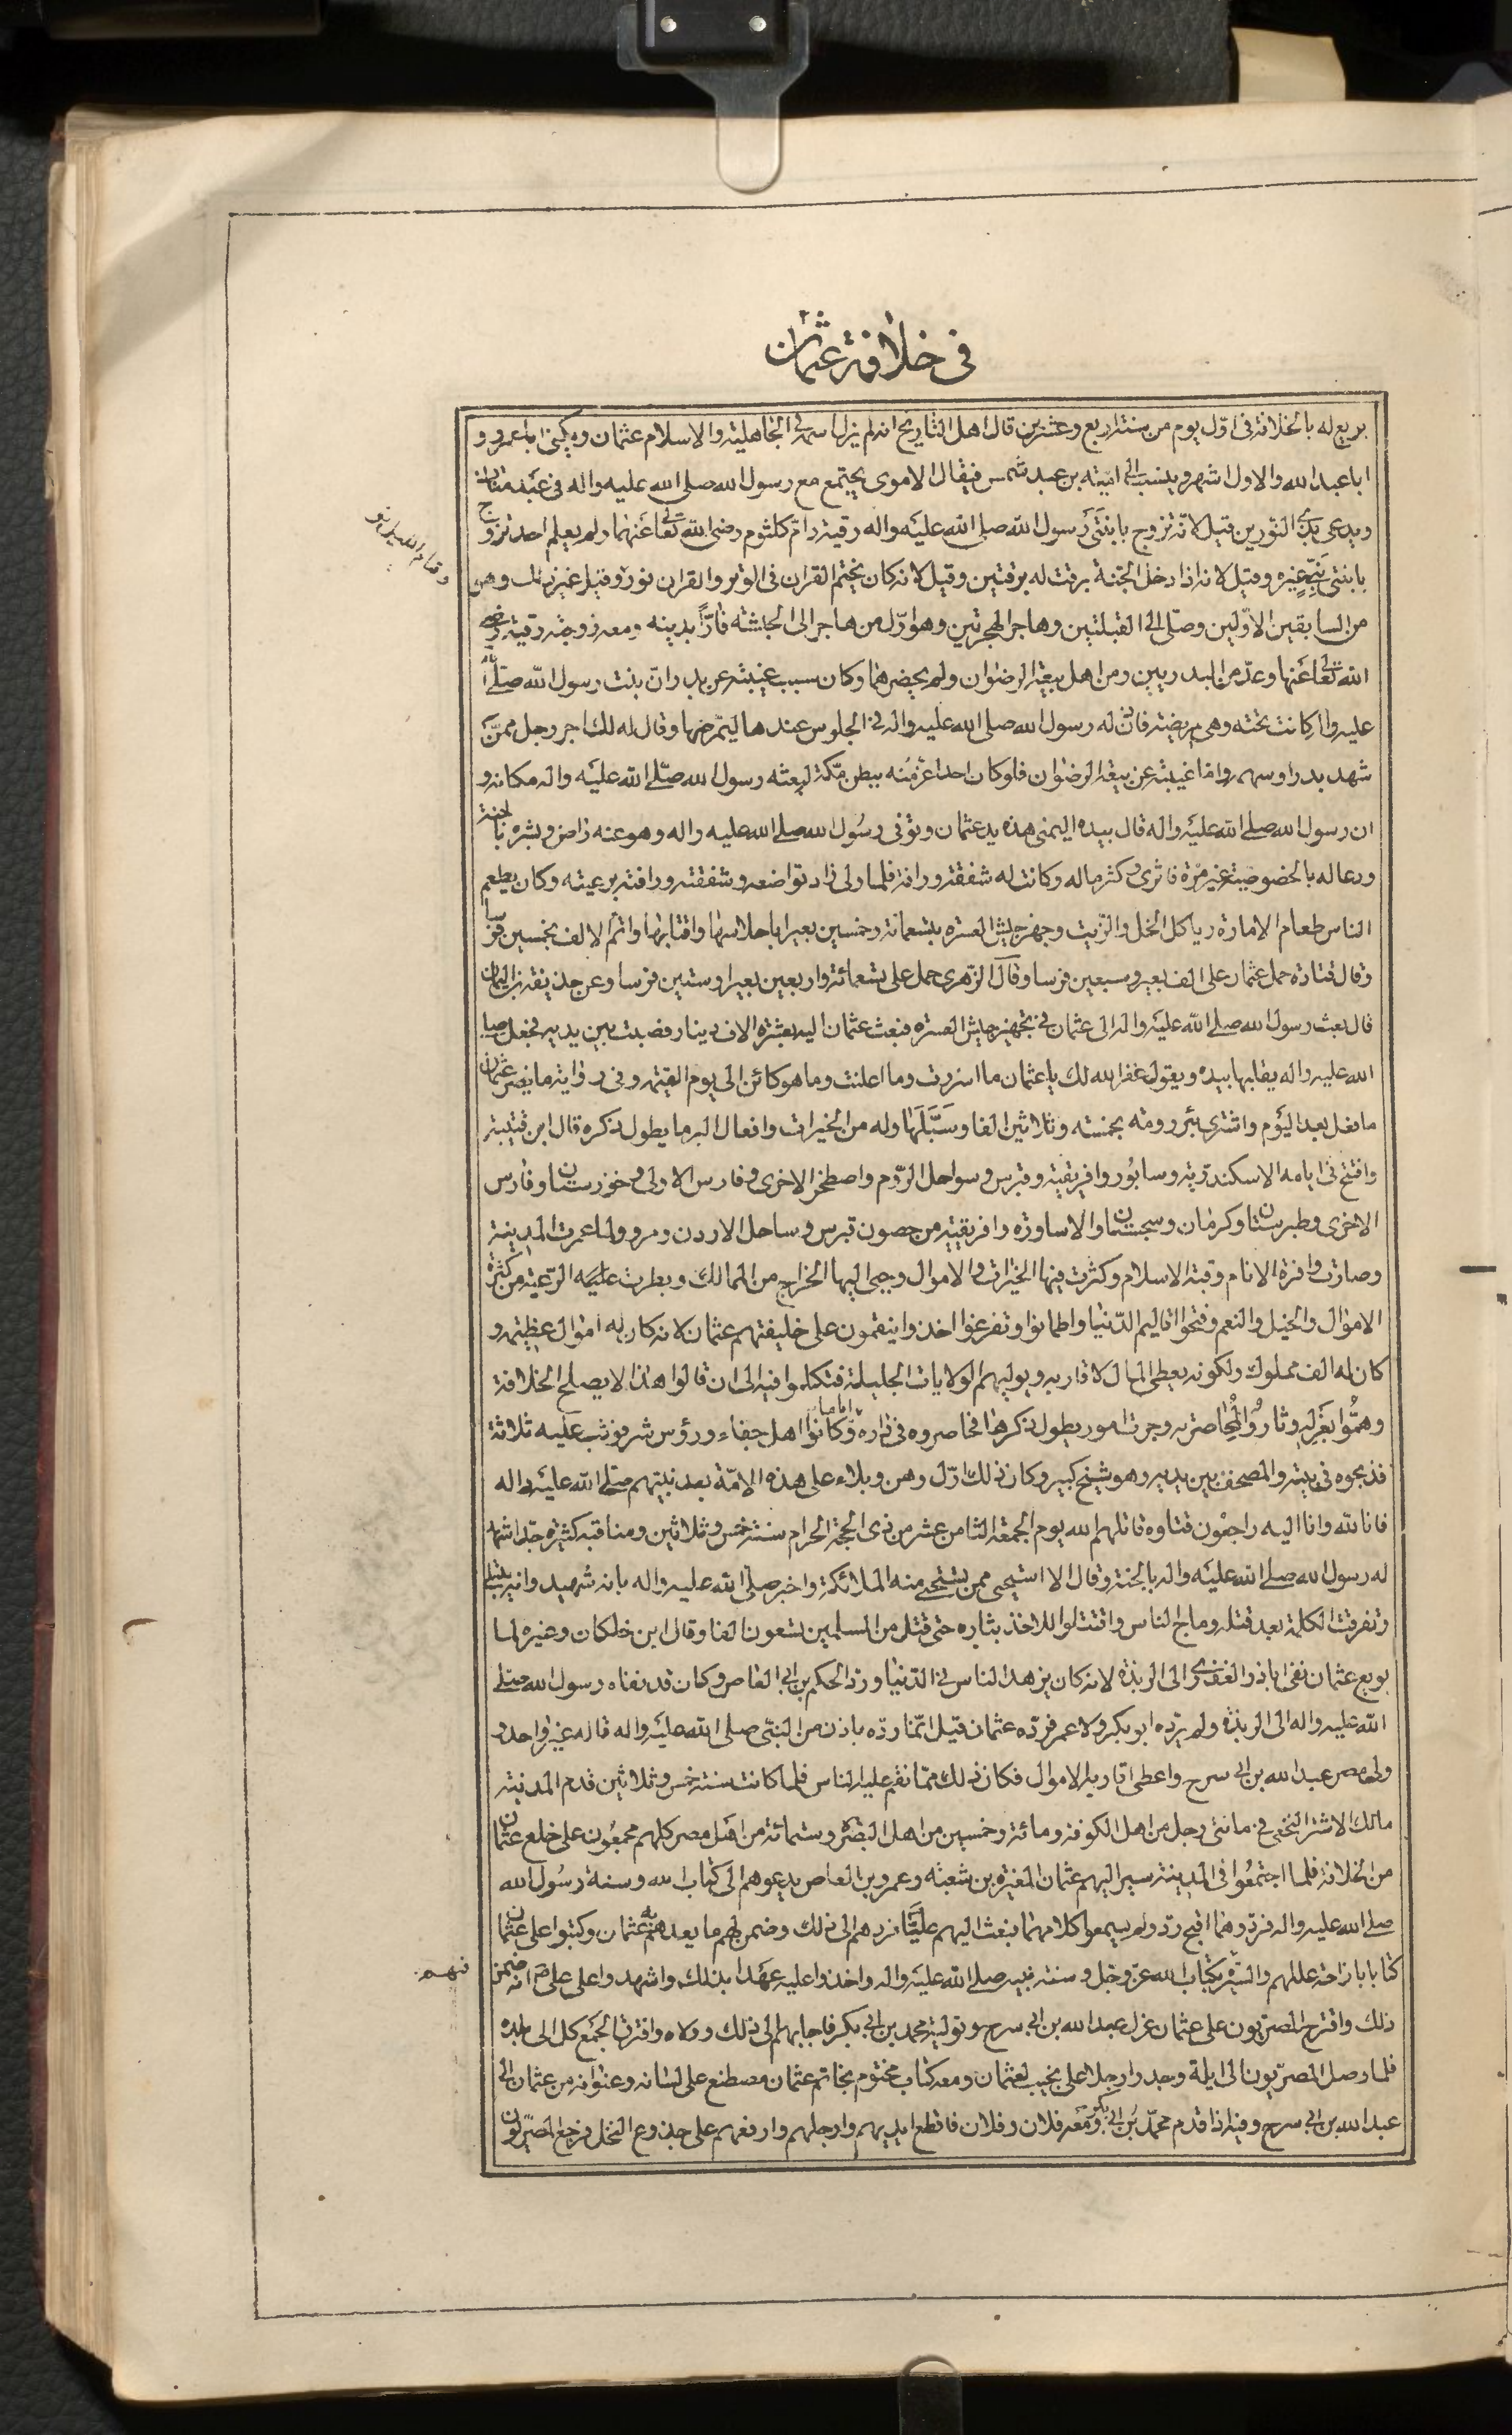 في خلافة عثمان
بويع له بالخلافة فى اوّل يوم من سنة اربع وعشرين قال اهل التاريخ انه لم يزل اسمه فى الجاهلية والاسلام عثمان ويكنى ابا عمرو و
ابا عبد الله والاول اشهر وينسب الى اميّة بن عبد شمس فيقال الاموى يجتمع مع رسول الله صلى الله عليه واله فى عبد مناف
ويدعى بذى النّورين قيل لانّه تزوج بابنتَى رَسول الله صلى الله عليه واله رقية وامّ كلثوم رضى الله تعالى عنهما ولم يعلم احد تزوج
بابنتى نبىّ غيره وقيل لانه اذا دخل الجنة برقت له برقتين وقيل لانه كان يختم القران فى الوتر والقران نور وقيل غير ذلك وهو
وقيام الليل نور
من السابقين الاوّلين وصلّى الى القبلتين وهاجر الهجرتين وهو اوّل من هاجر الى الحبشة فارّاً بدينه ومعه زوجته رقية رضى
الله تعالى عنها وعدّ من البدريين ومن اهل بيعة الرضوان ولم يحضرهما وكان سبب غيبته عن بدر انّ بنت رسول الله صلى الله
عليه واله كانت تحته وهى مريضة فاذن له رسول الله صلى الله عليه واله فى الجلوس عندها ليمّرضها وقال له لك اجر رجل ممّن
شهد بدرا وسهمه واما غيبته عن بيعة الرضوان فلو كان احدا عز منه ببطن مكّة لبعثه رسول الله صلّى الله عليه واله مكانه و
ان رسول الله صلى الله عليه واله قال بيده اليمنى هذه يد عثمان وتوفى رسُول الله صلى الله عليه واله وهو عنه راض وبشره بالجنة
ودعا له بالخصوصية غير مرّة فاثرى وكثر ماله وكانت له شفقة ورافة فلما ولى زاد تواضعه وشفقته ورافته برعيته وكان يطعم
الناس طعام الامارة وياكل الخل والزّيت وجهز جيش العسره بتسعمائة وخمسين بعيرا باحلاسها واقتابها واتم الالف بخمسين فرسا
وقال قتادة حمل عثمان على الف بعير وسبعين فرسا وقال الزّهرى حمل على تسعمائة واربعين بعيرا وستين فرسا وعن حذيفة بن اليمان
قال بعث رسول الله صلى الله عليه واله الى عثمان فى تجهيز جيش العسره فبعث عثمان اليه بعشرة الاف دينار فصبت بين يديه فجعل صلى
الله عليه واله يقلبها بيده ويقول غفر الله لك يا عثمان ما اسررت وما اعلنت وما هو كائن الى يوم القيمة وفى رواية ما يضر عثمان
ما فعل بعد اليَوم واشترى بئر رومة بخمسة وثلاثين الفا وسَبَّلَها وله من الخيرات وافعال البر ما يطول ذكره قال ابن قتيبة
وافتتح فى ايامه الاسكندرية وسابُور وافريقية وقبرس وسواحل الرّوم واصطخر الاخرى وفارس الاولى وخوزستان وفارس
الاخرى وطبرستان وكرمان وسجستان والاساورة وافريقيه من حصون قبرس وساحل الاردن ومرو ولما عمرت المدينة
وصارت وافرة الانام وقبة الاسلام وكثرت فيها الخيرات والاموال وجبى اليها الخراج من الممالك وبطرت عليه الرّعية من كثرة
الاموال والخيل والنعم وفتحوا اقاليم الدّنيا واطمانوا وتفرغوا اخذوا ينقمون على خليفتهم عثمان لانه كان له اموال عظيمة و
كان له الف مملوك ولكونه يعطى المال لاقاربه ويوليهم الولايات الجليلة فتكلموا فيه الى ان قالوا هذا لا يصلح للخلافة
وهمّوا بعَزله وثاروُا لمُحاصرته وجرت امور يطول ذكرها فحاصروه فى داره اياما وكانوا اهل جفاء ورؤس شر فوثب عليه ثلاثة
فذبحوه فى بيته والمصحف بين يديه وهو شيخ كبير وكان ذلك اوّل وهن وبلاء على هذه الامّة بعد نبيّهم صلى الله عليه واله
فانا لله وانا اليه راجعون قتلوه قاتلهم الله يوم الجمعة الثامن عشر من ذى الحجة الحرام سنة خمس وثلاثين ومناقبه كثيرة جدّا شهد
له رسول الله صلى الله عليه واله بالجنة وقال الا استحيى ممن تستحى منه الملائكة واخبر صلّى الله عليه واله بانه شهيد وانه يبتلى
وتفرقت الكلمة بعد قتله وماج الناس واقتتلوا للاخذ بثاره حتى قتل من المسلمين تسعون الفا وقال ابن خلكان وغيره لما
بويع عثمان نفى اباذر الغفارى الى الربذة لانه كان يزهد الناس فى الدّنيا وردّ الحكم بن ابى العاص وكان قد نفاه رسول الله صلى
الله عليه واله الى الربذة ولم يردّه ابو بكر ولا عمر فردّه عثمان قيل انّما ردّه باذن من النبّى صلى الله عليه واله قاله غير واحد و
ولى مصر عبد الله بن ابى سرح واعطى اقاربه الاموال فكان ذلك ممّا نقم عليه الناس فلما كانت سنة خمس وثلاثين قدم المدينة
مالك الاشتر النخعى فى مائتى رجل من اهل الكوفة ومائة وخمسين من اهل البصرة وستمائة من اهل مصر كلهم مجمعُون على خلع عثمان
من الخلافة فلما اجتمعُوا فى المدينة سير اليهم عثمان المغيرة بن شعبة وعمرو بن العاص يدعوهم الى كتاب الله وسنة رسُول الله
صلى الله عليه واله فردّوهما اقبح ردّ ولم يسمعوا كلامهما فبعث اليهم عليّا فردهم الى ذلك وضمن لهم ما يعدهم به عثمان وكتبوا على عثمان
كتابا بازاحة عللهم والسّير فيهم بكتاب الله عزّ وجل وسنة نبيه صلى الله عليه واله واخذوا عليه عهَدا بذلك واشهدوا على علىّ انه ضمن
ذلك واقترح المصريّون على عثمان عزل عبد الله بن ابى سرح وتولية محمد بن ابى بكر فاجابهم الى ذلك وولاه وافترق الجمع كل الى بلده
فلما وصل المصريّون الى ايلة وجدوا رجلا على نجيب لعثمان ومعه كتاب مختوم بخاتم عثمان مصطنع على لسانه وعنوانه من عثمان الى
عبد الله بن ابى سرح وفيه اذا قدم محمّد بن ابى بكر ومعه فلان وفلان فاقطع ايديهم وارجلهم وارفعهم على جذوع النخل فرجع المصريّون